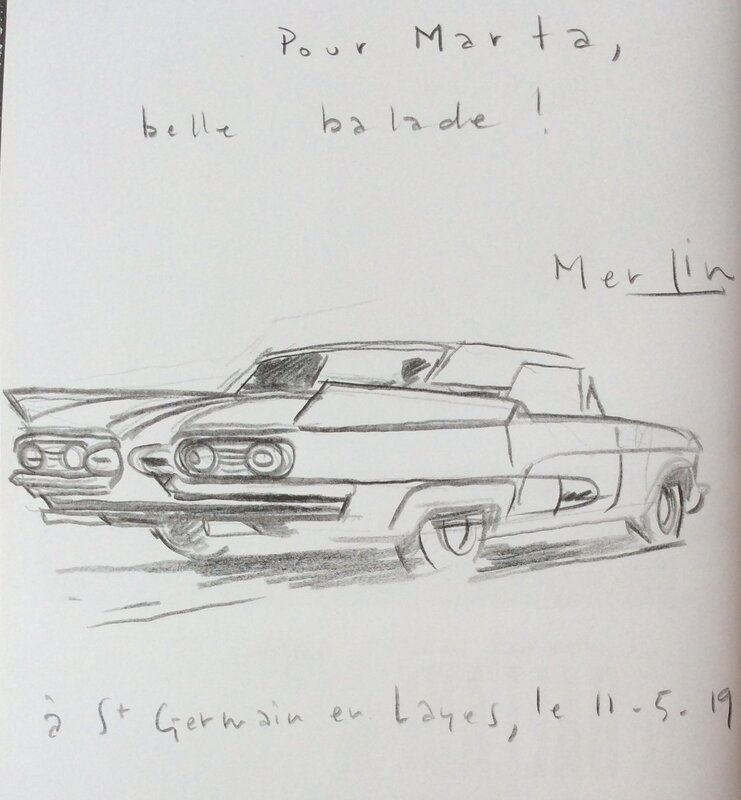 Pour Marta,
belle balade !
Merlin
à St Germain en Layes, le 11-5-19